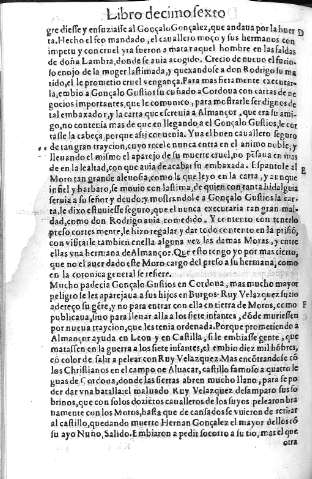 Libro decimo sexto
gredi esse y ensuziasse al Gonçalo Gonçalez, que andaua por la huer
ta. Hecho esso mandado, el cauallero moço y sus hermanos con
impetu y con cruel yra fueron a matar aquel hombre en las faldas
de doña Lambra, donde se auia acogido. Crecio de nueuo el furio
so enojo de la muger lastimada, y quexandose a don Rodrigo su ma
rido, el le prometio cruel vengança. Para mas fieramente executar
la, embio a Gonçalo Gustios su cuñado a Cordoua con cartas de ne
gocios importantes, que le comunico, para mostrarle ser digno de
tal embaxador, y la carta que escreuia a Almançor, que era su ami
go, no contenia mas de que en llegando a el Gonçalo Gustios, le cor
tasse la cabeça, porque assi conuenia. Yua el buen cauallero seguro
de tan gran traycion, cuyo recelo nunca entra en el animo noble, y
lleuando el mismo el aparejo de su muerte cruel, no pensaua en mas
de en la lealtad, con que auia de acabar su embaxada. Espantole al
Moro tan grande aleuosia, como la que leyo en la carta, y aunque
infiel y barbaro, se mouio con lastima, de quien con tanta hidalguia
seruia a su señor y deudo: y mostrandole a Gonçalo Gustios la car
ta, le dixo estuuiesse seguro, que el nunca executaria tan gran mal-
dad, como don Rodrigo auia comedido. Y contento con tenerlo
preso cortesmente, le hizo regalar y dar todo contento en la prisiō,
con visitarle tambien en ella alguna vez las damas Moras, y entre
ellas vna hermana de Almançor. Que esto tengo yo por mas cierto,
que no el auer dado este Moro cargo del preso a su hermana, como
en la coronica general se refiere.
Mucho padecia Gonçalo Gustios en Cordoua, mas mucho mayor
peligro se les aparejaua a sus hijos en Burgos. Ruy Velazquez su tio
adereço su gēte, y no para entrar con ella en tierra de Moros, como
publicaua, sino para lleuar alla a los siete infantes, dōde muriessen
por nueua traycion, que les tenia ordenada. Porque prometiendo a
Almançor ayuda en Leon y en Castilla, si le embiasse gente, que
matassen en la guerra a los siete infantes, el embio diez mil hōbres,
cō color de salir a pelear con Ruy Velazquez. Mas encōtrandose cō
los Christianos en el campo de Aluacar, castillo famoso a quatro le
guas de Cordoua, donde las sierras abren mucho llano, para se po
der dar vna batalla: el maluado Ruy Velazquez desamparo sus so
brinos, que con solos dozientos caualleros de los suyos pelearon bra
uamente con los Moros, hasta que de cansados se vuieron de retirar
al castillo, quedando muerto Hernan Gonçalez el mayor dellos cō
su ayo Nuño, Salido. Embiaron a pedir socorro a su tio, mas el que
otra